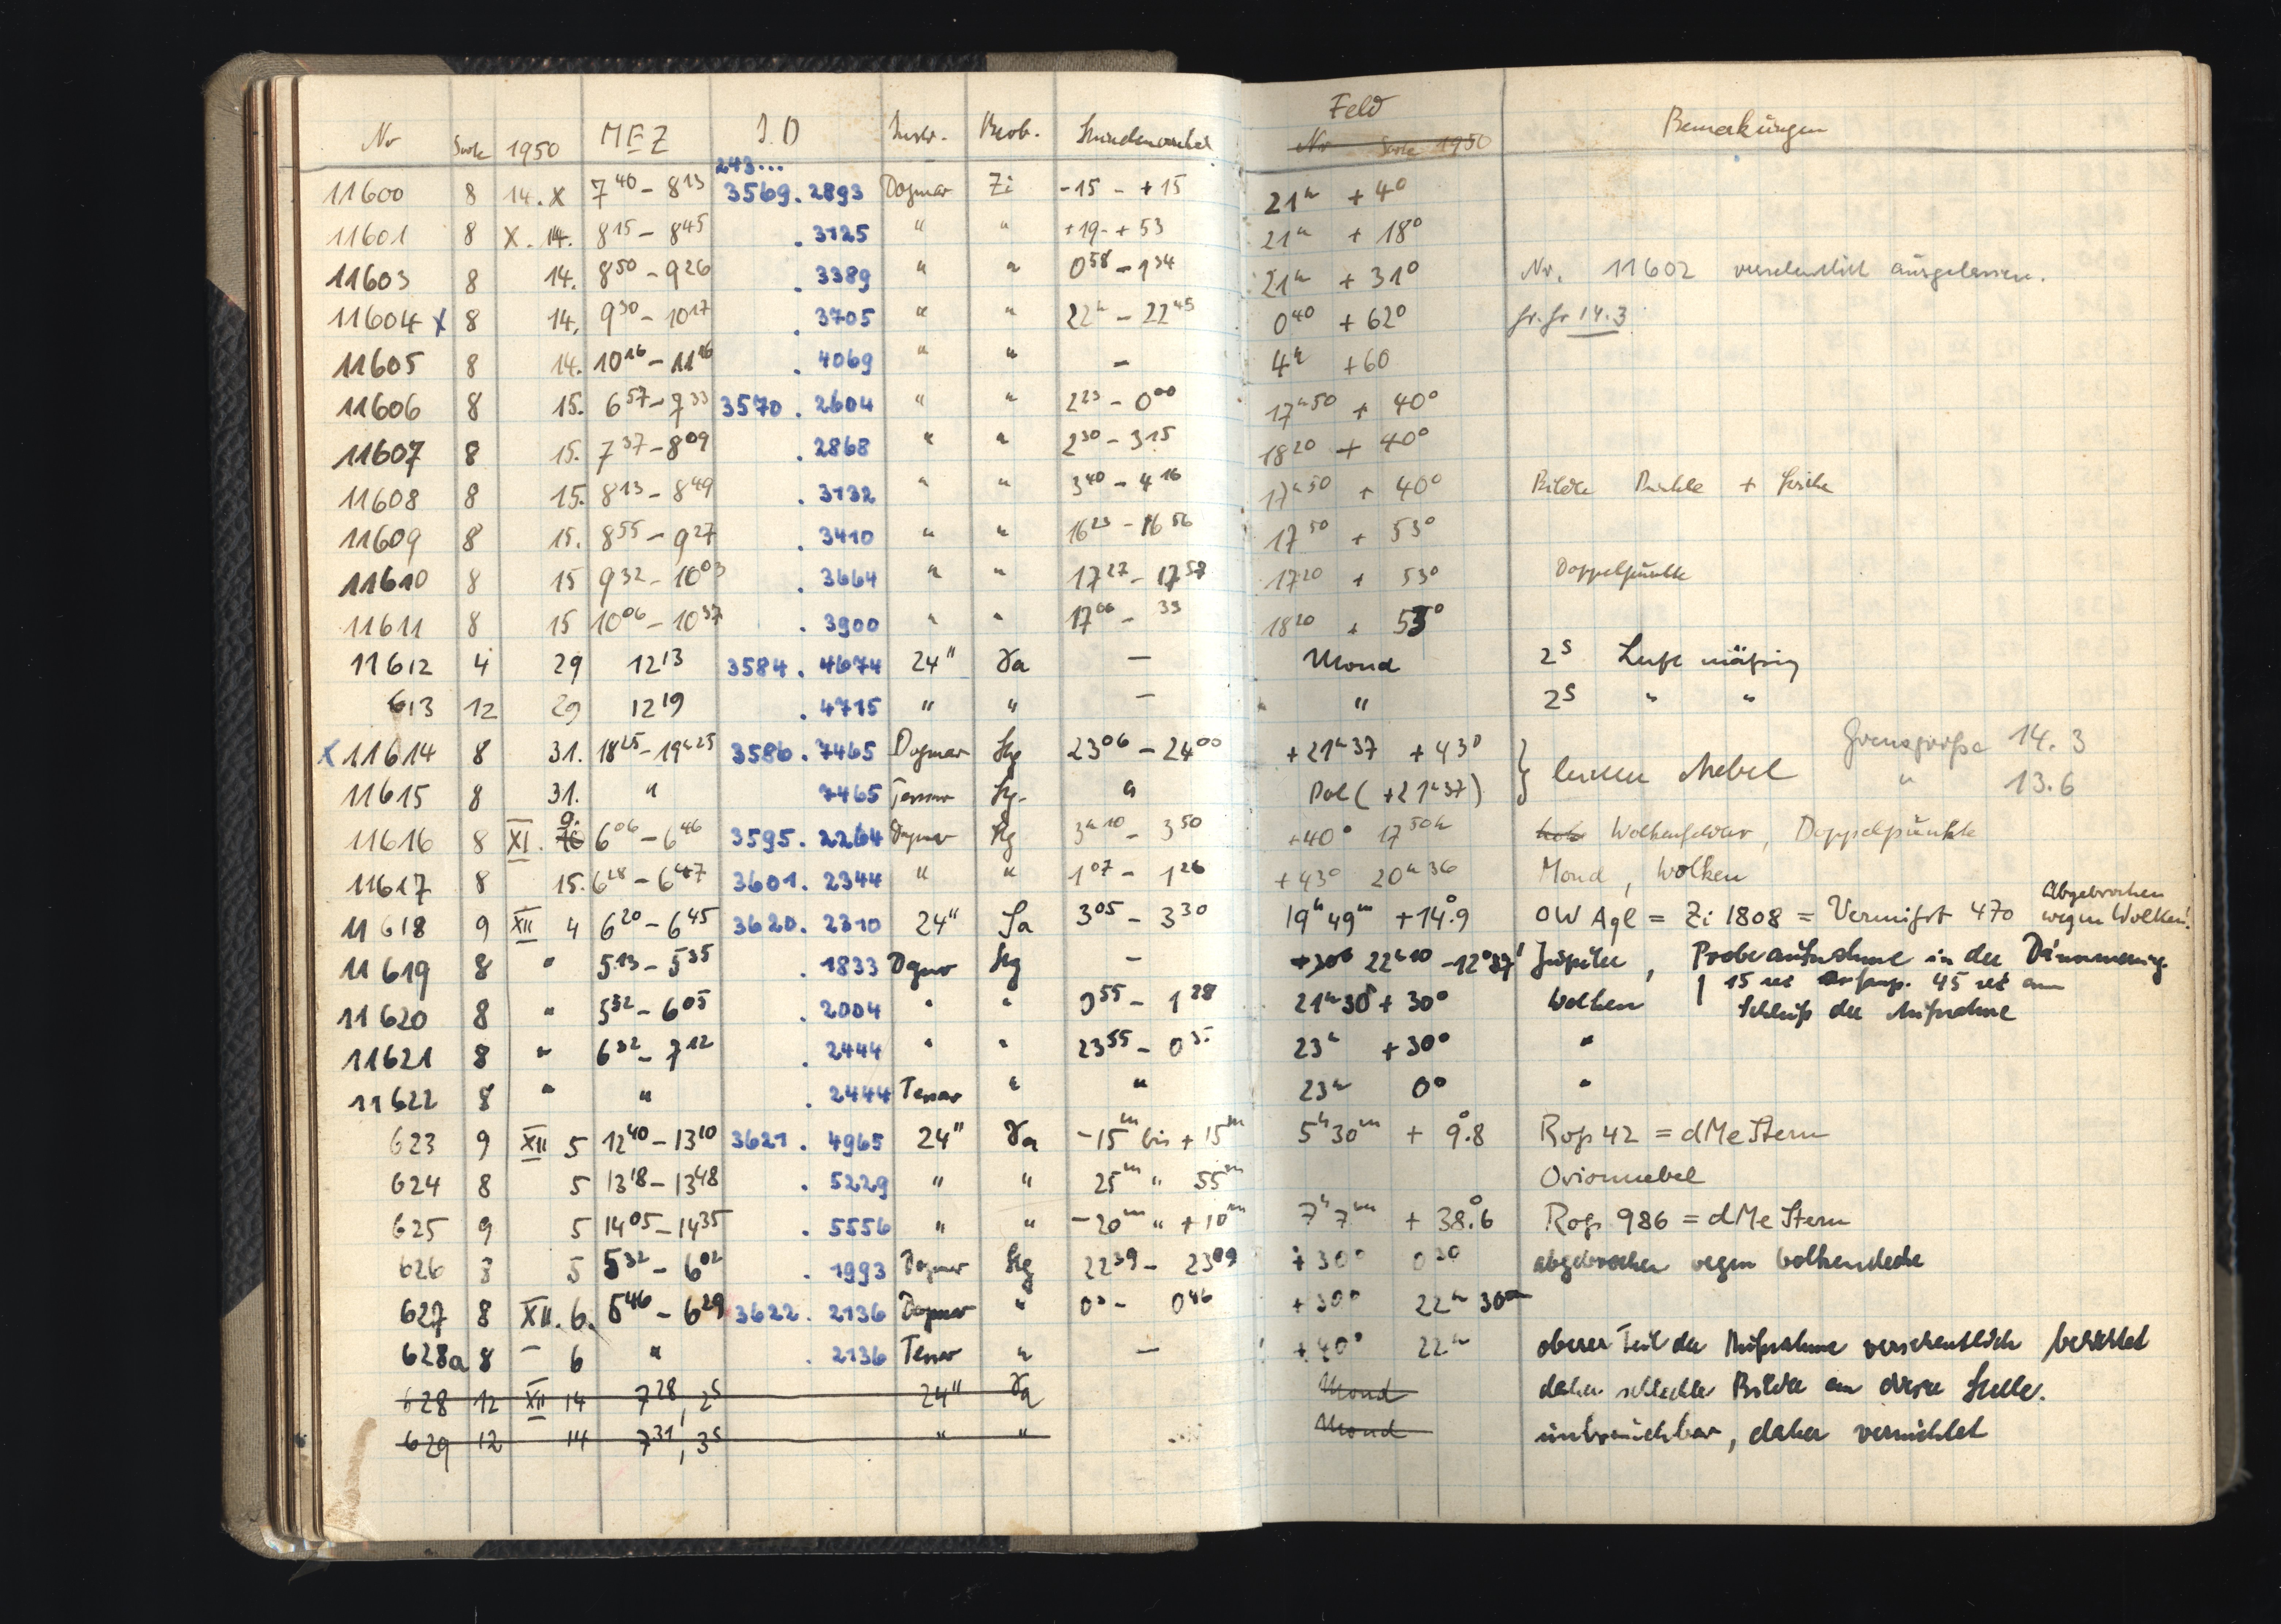 Nr Sorte 1950 MEZ J.D Instr. Beob. Stundenwinkel Feld Bemerkungen
Nr Sorte 1950
243...
11600 8 14. X 7 40 – 8 13 3569. 2893 Dogmar Zi -15 - +15 21h + 4°
11601 8 X. 14. 8 15 – 8 45 . 3125 " " +19 - + 53 21h + 18°
11603 8 14. 8 50 – 9 26 . 3389 " " 0 58 – 1 34 21h + 31° Nr. 11602 versehentlich ausgelassen.
11604 X 8 14. 9 30 – 10 17 . 3705 " " 22h – 22 45 0 40 + 62° Gr. Gr 14.3
11605 8 14. 10 16 – 11 16 . 4069 " " – 4h +60
11606 8 15. 6 57 – 7 33 3570 . 2604 " " 2 23 – 0 00 17h 50 + 40°
11607 8 15. 7 37 – 8 09 . 2868 " " 2 30 – 3 15 18 20 + 40°
11608 8 15. 8 13 – 8 49 . 3132 " " 3 40 – 4 16 17h 50 + 40° Bilder Punkte + Striche
11609 8 15. 8 55 – 9 27 . 3410 " " 16 23 – 16 56 17 50 + 53°
11610 8 15 9 32 – 10 03 . 3664 " " 17 27 – 17 58 17 20 + 53° Doppelpunkte
11611 8 15 10 06 – 10 37 . 3900 " " 17 00 – 33 18 20 + 53°
11612 4 29 12 13 3584. 4674 24" — Mond 2s Luft mäßig
613 12 29 12 19 . 4715 " " — " 2s " "
X 11614 8 31. 18 25 – 19h 25 3586. 7465 Dogmar 23 06 – 24 00 +21h 37 +43° } leichter Nebel Grenzgröße 14.3
11615 8 31. " 7465 Tessar " Pol ( +21h 37) " 13.6
11616 8 XI. 9. 6 06 – 6 46 3595. 2264 Dogmar 3h 10 – 3 50 +40° 17 50h Wolkenfelder, Doppelpunkte
11617 8 15. 6 28 – 6 47 3601. 2344 " " 1 07 – 1 26 +43° 20h 36 Mond, Wolken
11618 9 XII 4 6 20 – 6 45 3620. 2310 24" 3 05 – 3 30 19h 49m +14°.9 OW Aql = Zi 1808 = Vermißt 470 Abgebrochen wegen Wolken!
11619 8 " 5 13 – 5 35 . 1833 Dogmar – +30° 22h 10 -12°37' Jupiter, Probeaufnahme in der Dämmerung.
11620 8 " 5 32 – 6 05 . 2004 " " 0 55 – 1 28 21h 30 + 30° Wolken 15 sec Anfang. 45 sec am
Schluß der Aufnahme
11621 8 " 6 32 – 7 12 . 2444 " " 23 55 – 0 35 23h +30° "
11622 8 " " . 2444 Tessar " " 23h 0° "
623 9 XII 5 12 40 – 13 10 3621. 4965 24" -15m bis +15m 5h 30m + 9°.8 Ross 42 = dMe Stern
624 8 5 13 18 – 13 48 . 5229 " " 25m " 55m Orionnebel
625 9 5 14 05 – 14 35 . 5556 " " -20m " +10m 7h 7m + 38°.6 Ross 986 = dMe Stern
626 8 5 5 32 – 6 02 . 1993 Dogmar 22 39 – 23 09 +30° 0 30 abgebrochen wegen Wolkendecke
627 8 XII. 6. 5 46 – 6 29 3622. 2136 Dogmar " 0 0 – 0 46 +30° 22h 30m
628a 8 – 6 " . 2136 Tessar " – +40° 22h oberer Teil der Aufnahme versehentlich belichtet
628 12 XII 14 7 28, 2s 24" Mond daher schlechte Bilder an dieser Stelle.
629 12 14 7 31, 3s " " Mond unbrauchbar, daher vernichtet